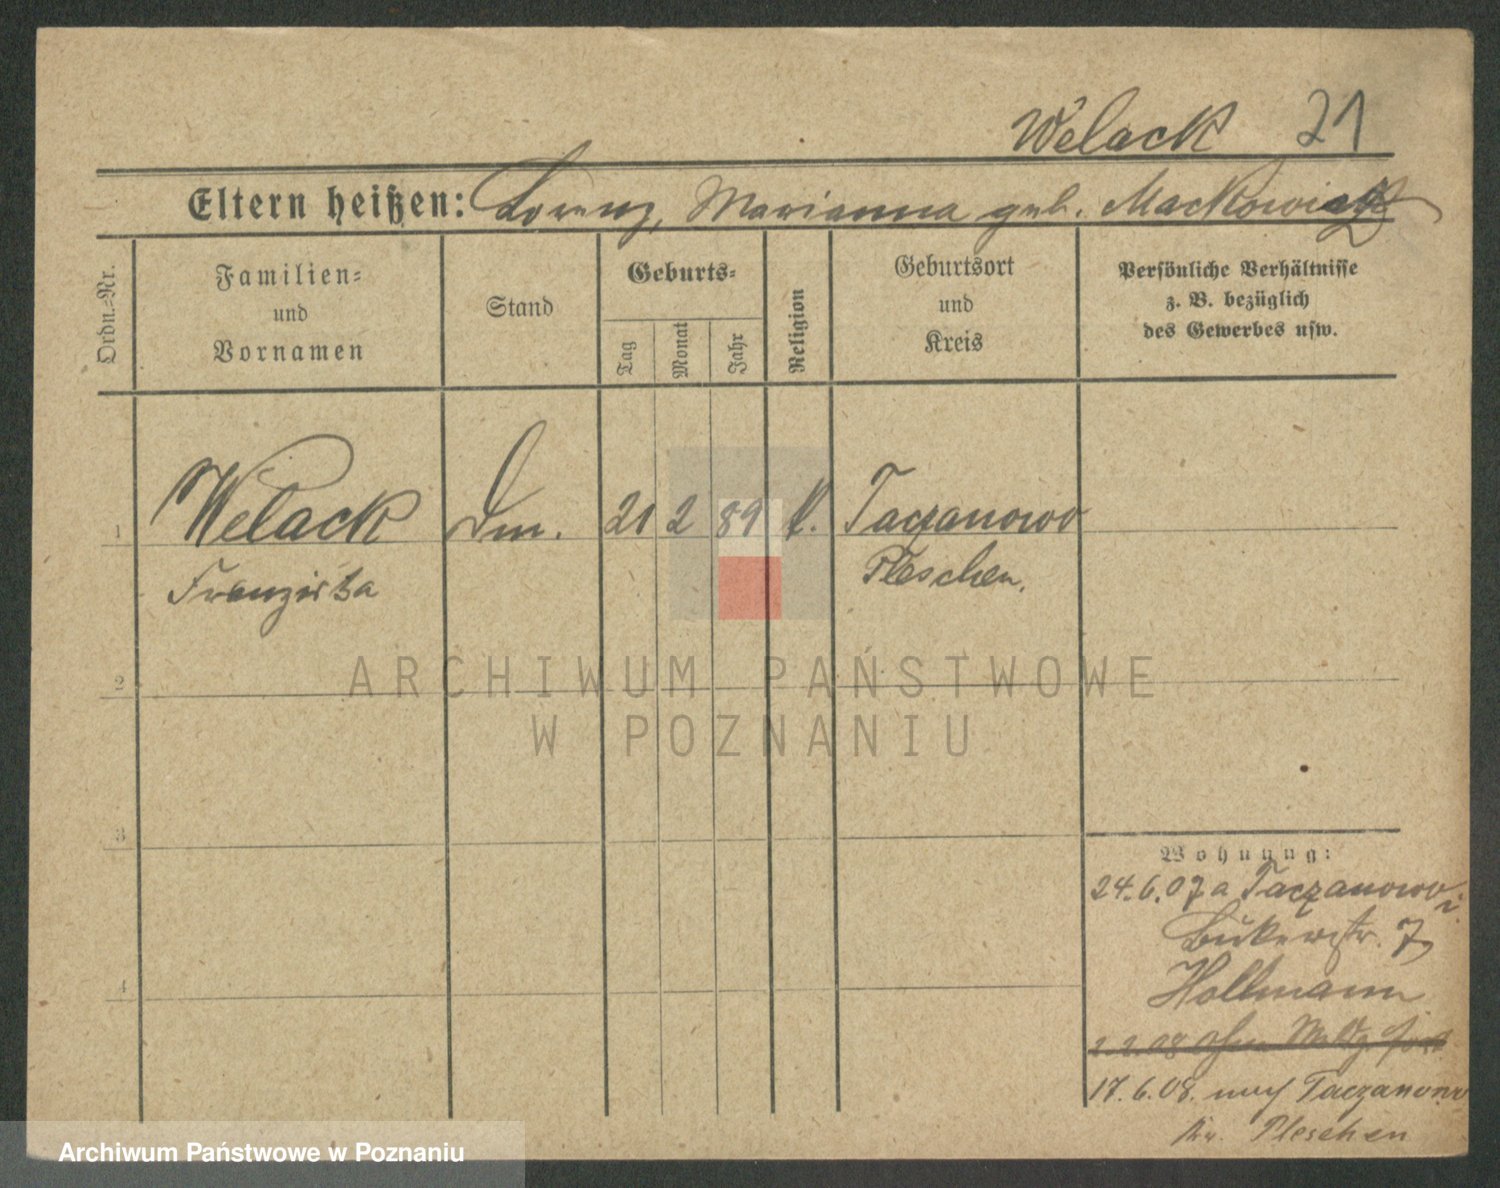 Welack 21
Eltern heißen: Lorenz, Marianna geb. Mackowiak
Ordn.-Nr.
Familien-
und
Vornamen
Stand
Geburts-
Tag
Monat
Jahr
Religion
Geburtsort
und
Kreis
Persönliche Verhältnisse
z. B. bezüglich
des Gewerbes usw.
1 Welack Dm. 21 2 89 k. Taczanowo
Franziska Pleschen.
2
3
4
Wohnung:
24.6.07 a Taczanowo
Bukerstr. 7
Hollmann
2.2.08 ohne Mldg. fort
17.6.08. nach Taczanowo
Kr. Pleschen
ARCHIWUM PAŃSTWOWE
W POZNANIU
Archiwum Państwowe w Poznaniu